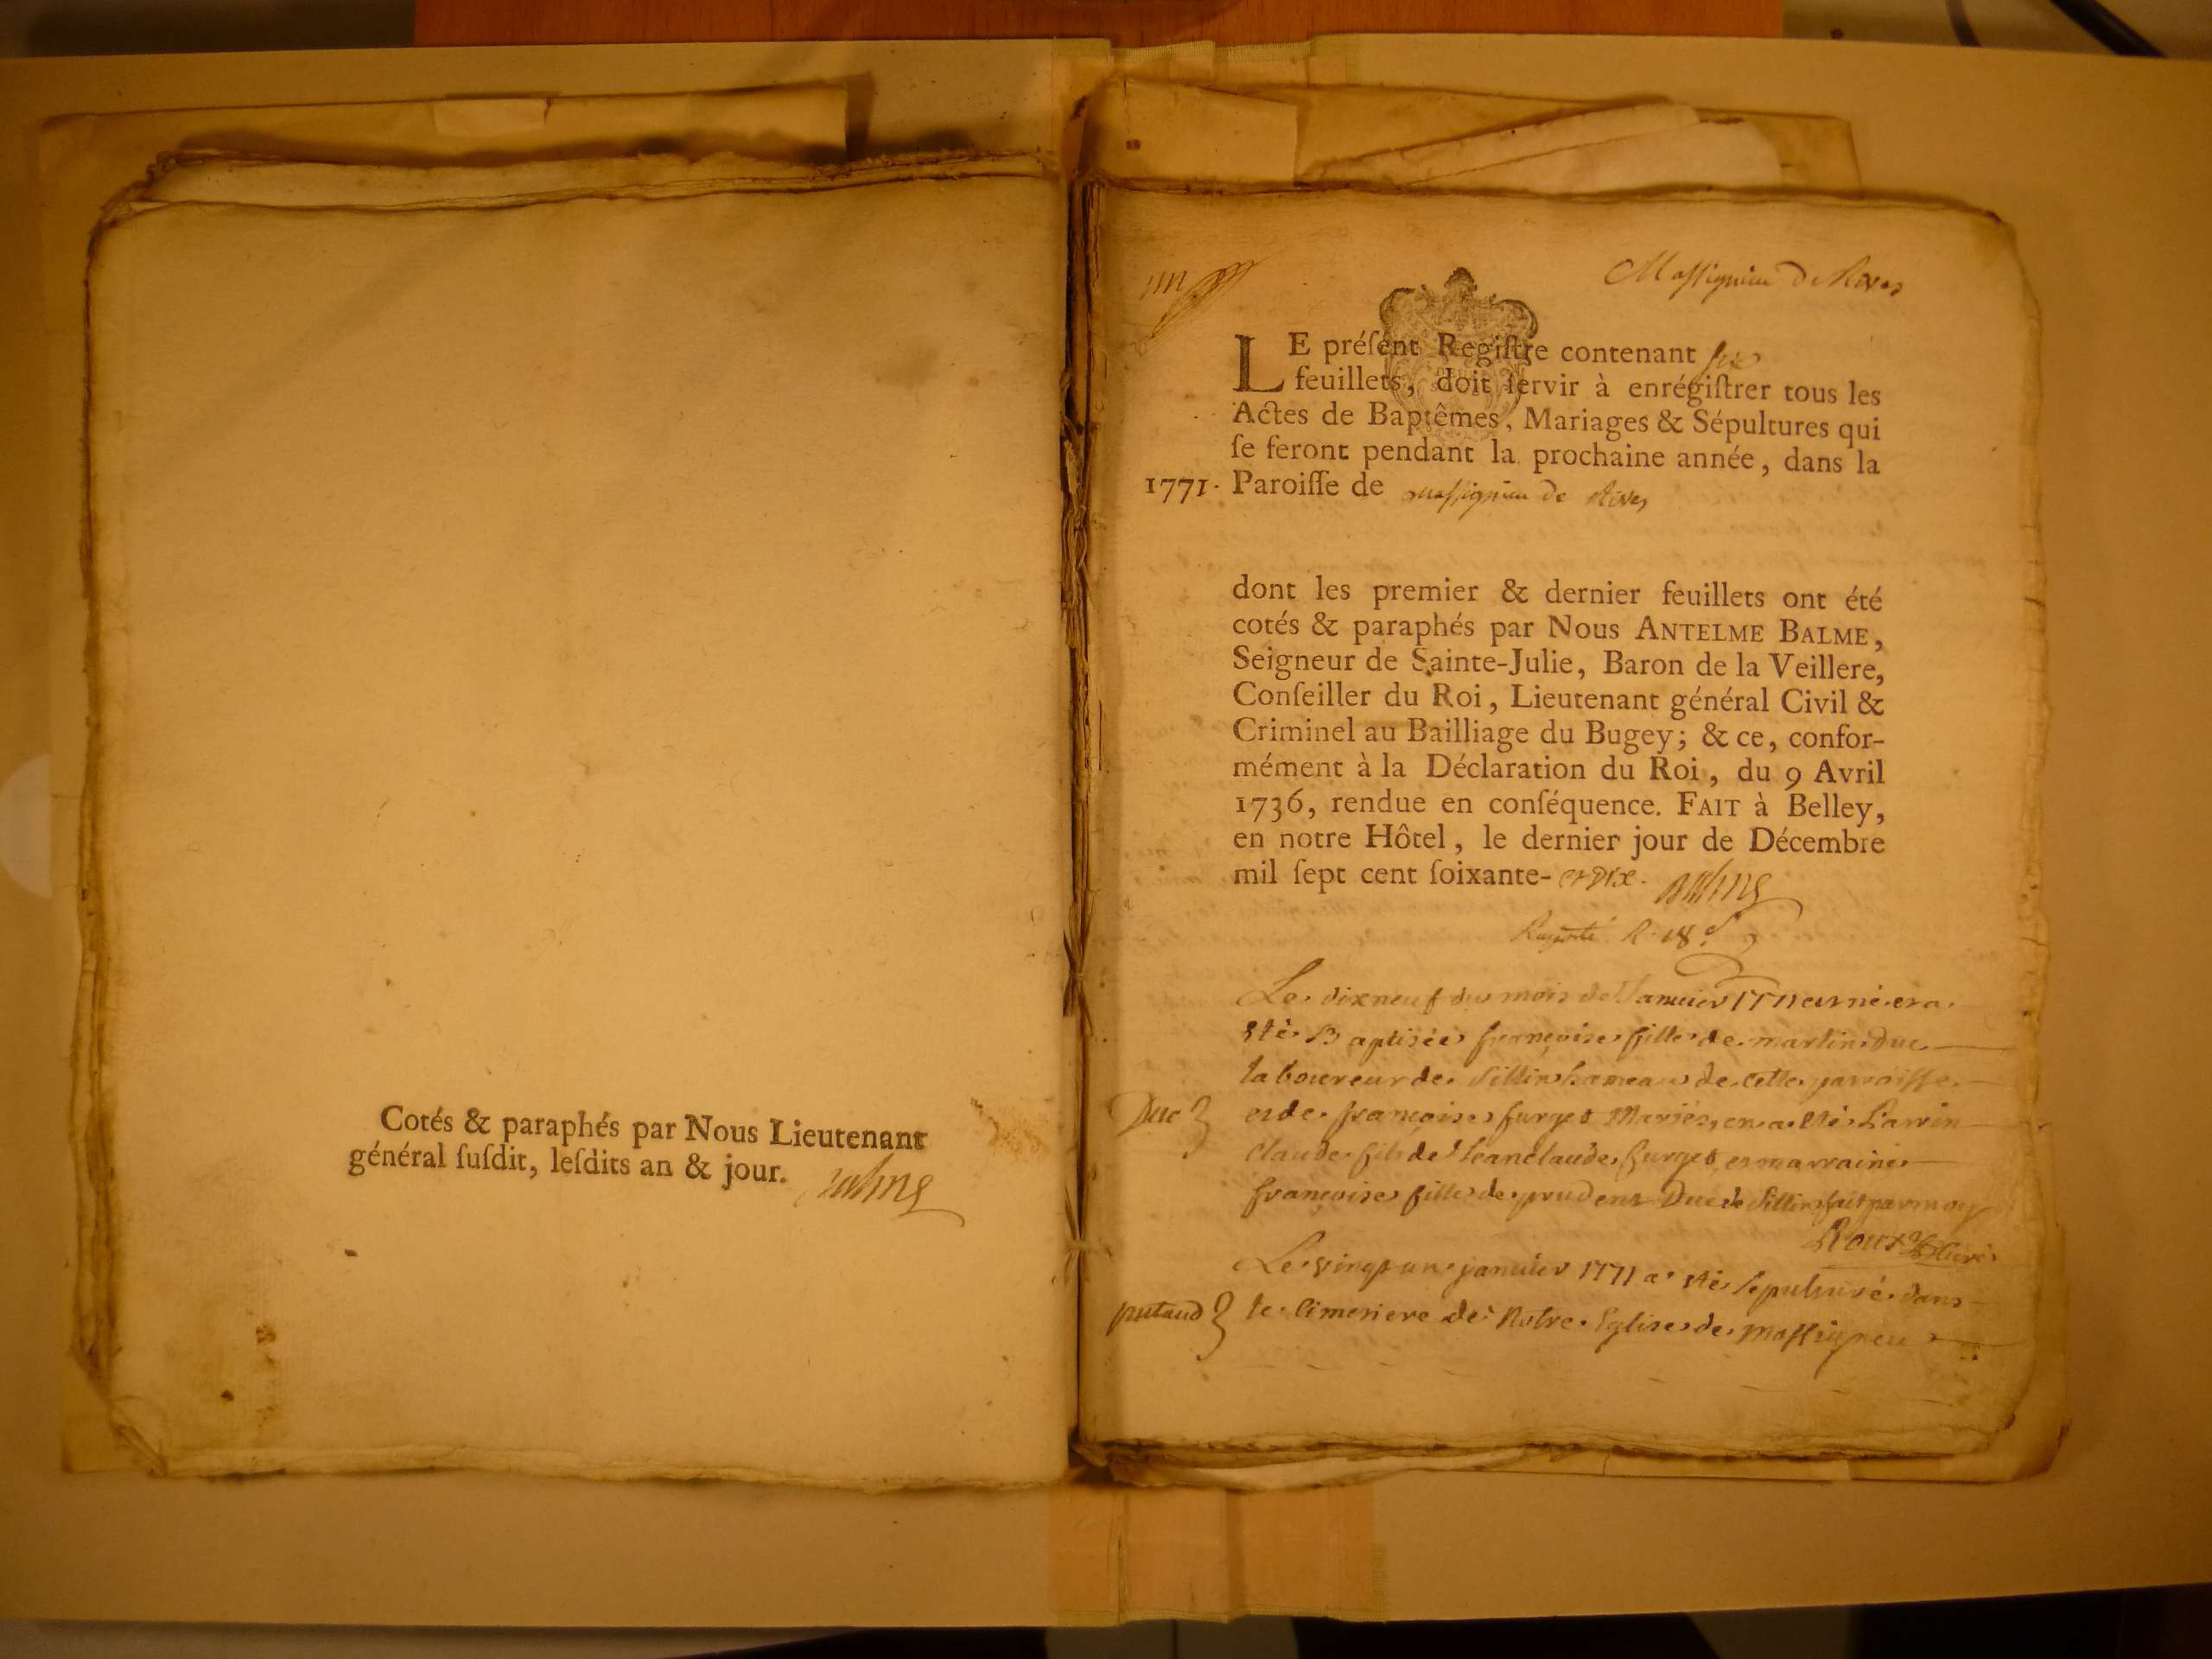 Cotés & paraphés par Nous Lieutenant
général ſuſdit, leſdits an & jour.
Massignieu de Rives
LE préſent Regiſtre contenant six
feuillets, doit ſervir à enrégiſtrer tous les
Actes de Baptêmes, Mariages & Sépultures qui
ſe feront pendant la prochaine année, dans la
1771. Paroiſſe de massignieu de Rives
dont les premier & dernier feuillets ont été
cotés & paraphés par Nous ANTELME BALME,
Seigneur de Sainte-Julie, Baron de la Veillere,
Conſeiller du Roi, Lieutenant général Civil &
Criminel au Bailliage du Bugey; & ce, confor-
mément à la Déclaration du Roi, du 9 Avril
1736, rendue en conſéquence. FAIT à Belley,
en notre Hôtel, le dernier jour de Décembre
mil ſept cent ſoixante- et dix. Balme
Le dixneuf du mois de Januier 1771 est né et a
été Baptisée françoise fille de martin Duc
laboureur de Sillin hameau de cette parroisse
Duc et de françoise furget Mariés, en a été Parrin
Claude fils de Jeanclaude furget et marraine
françoise fille de prudent Duc de Sillin fait par moy
Roux Curé
Le vingt un januier 1771 a été sepulturé dans
putaud le Cimetiere de Notre Eglise de Massigneu